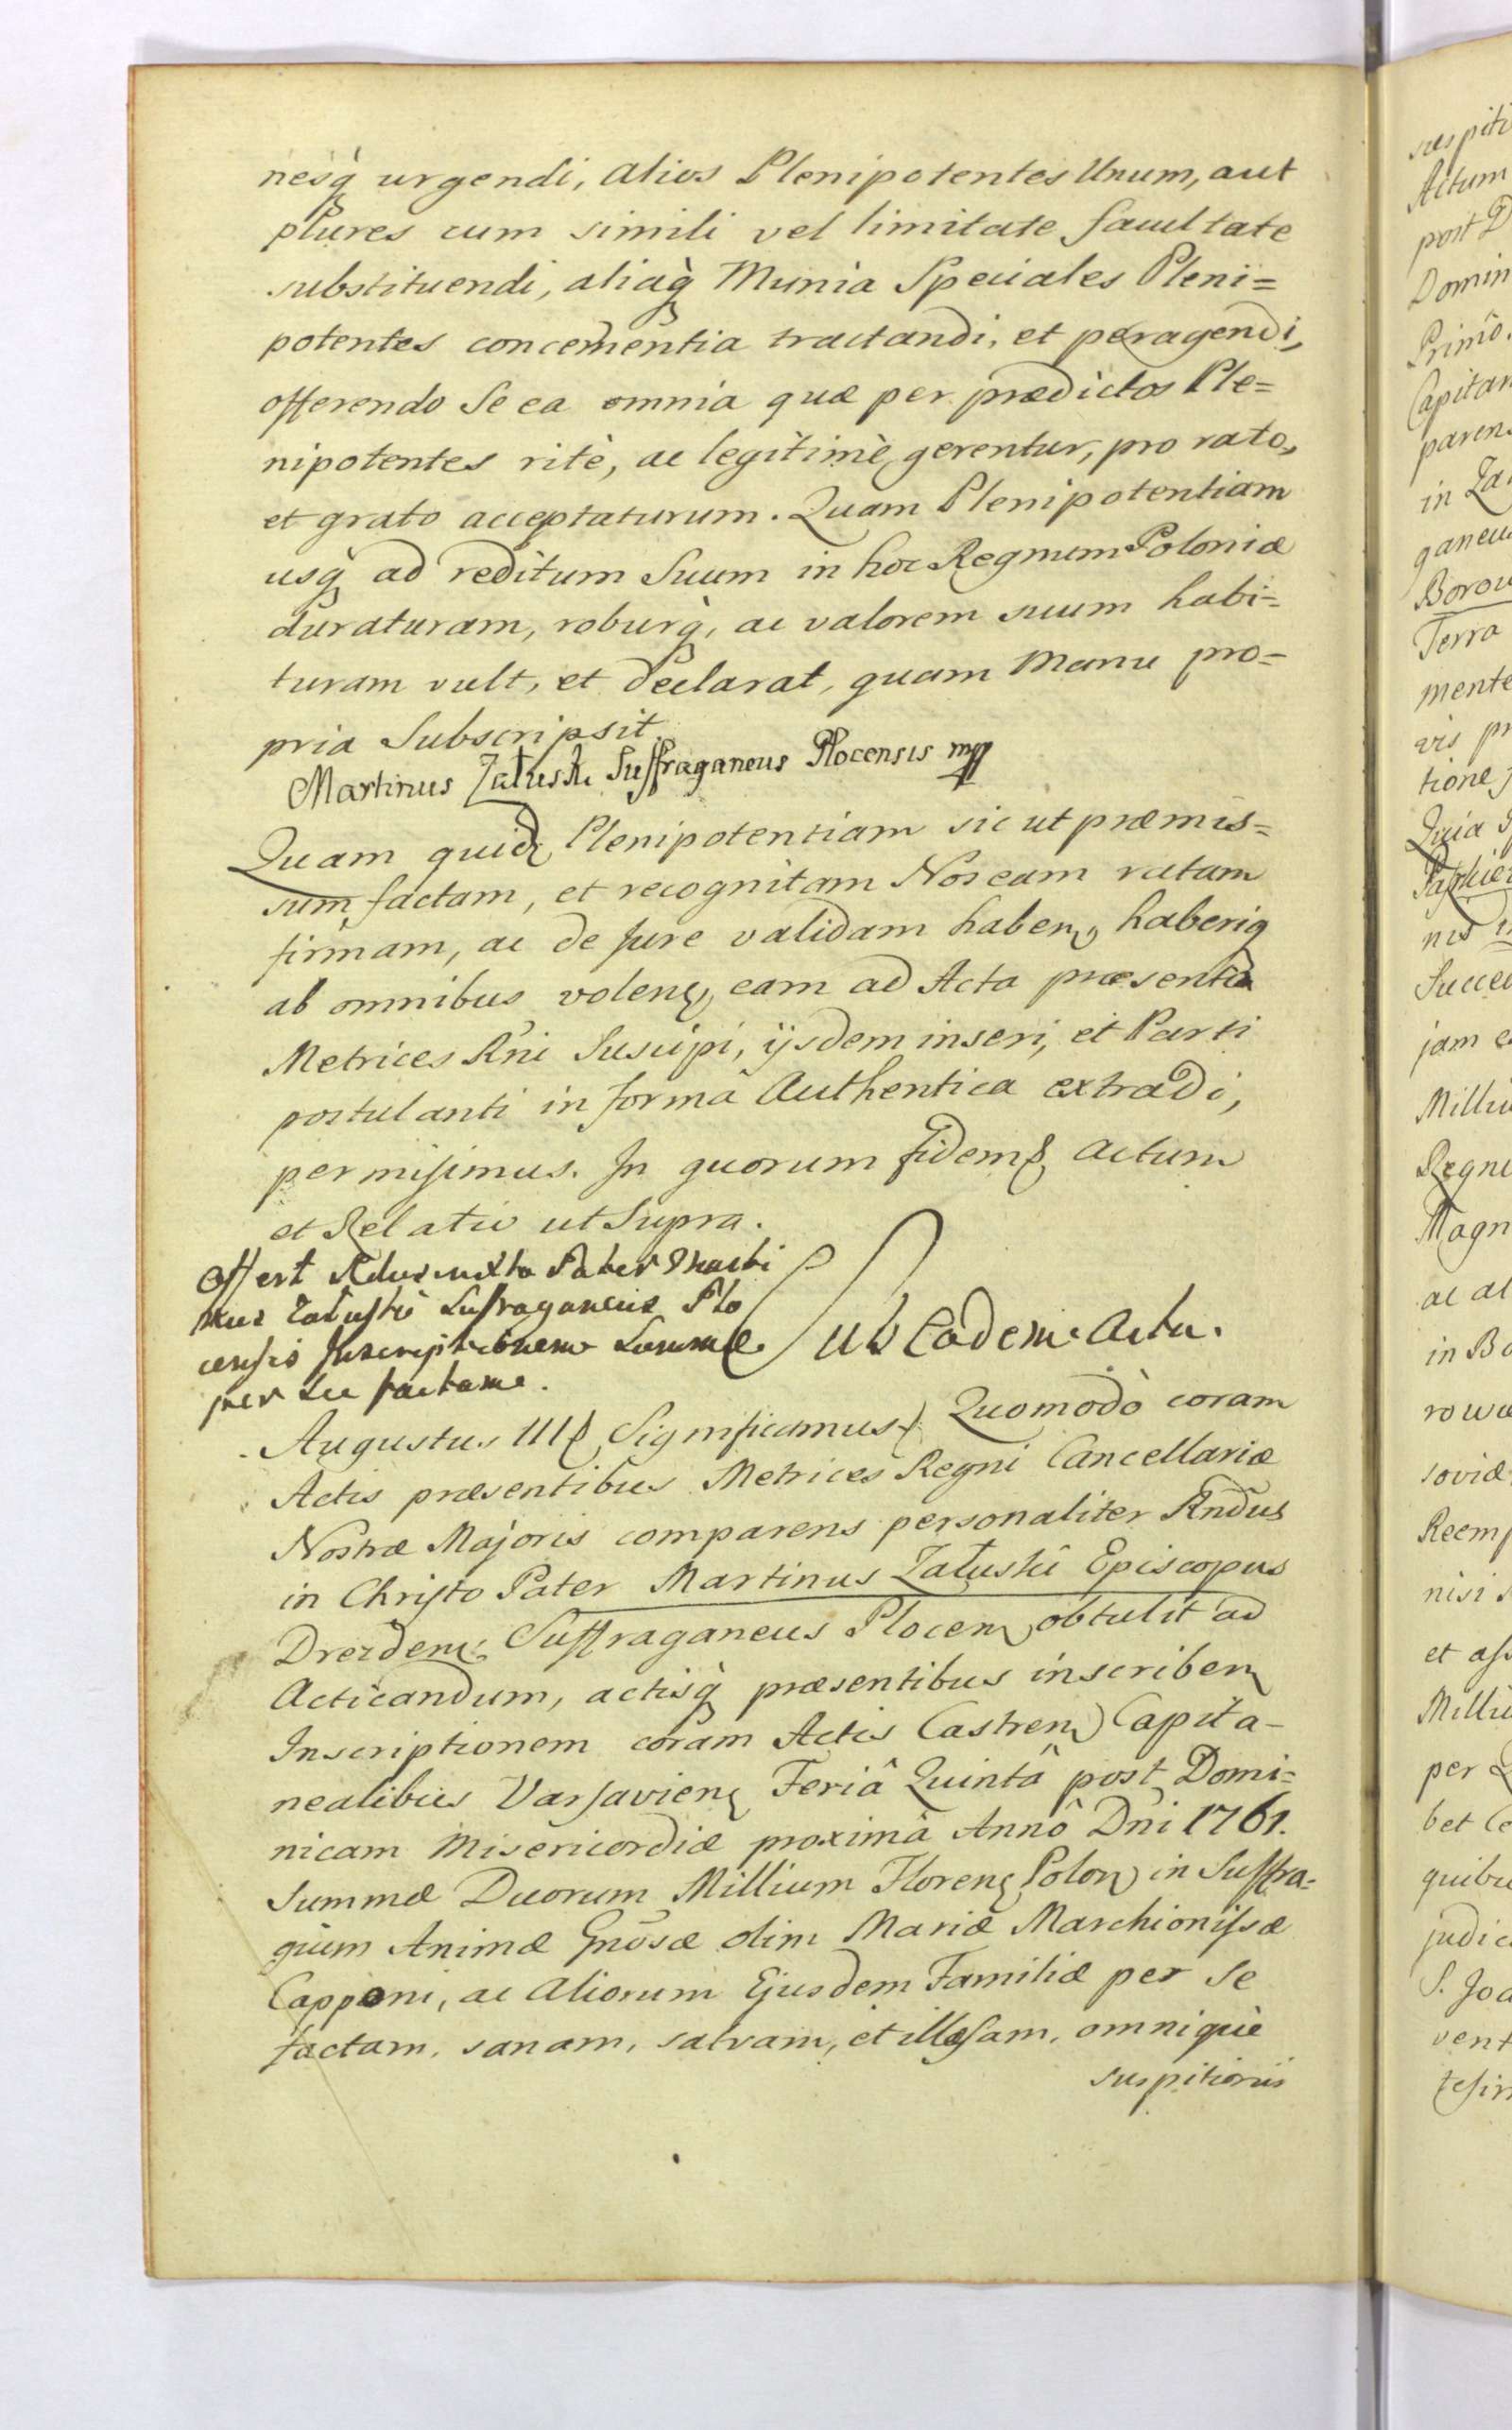 nesq̀ urgendi, alios Plenipotentes Unum, aut
plures cum simili vel limitate facultate
substituendi, aliaq̀ Munia Speciales Pleni=
potentes concernentia tractandi, et peragendi,
offerendo Se ea omnia quæ per prædictos Ple=
nipotentes ritè, ac legitimè gerentur, pro rato,
et grato acceptaturum. Quam Plenipotentiam
usq̀ ad reditum Suum in hoc Regnum Poloniæ
duraturam, roburq̀, ac valorem suum habi=
turam vult, et declarat, quam Manu pro=
pria Subscripsit.
Martinus Załuski Suffraganeus Plocensis mpp
Quam quid Plenipotentiam sic ut præmis=
sum factam, et recognitam Nos eam ratam
firmam, ac de Jure validam haben, haberiq
ab omnibus volen, eam ad Acta præsentia
Metrices Rni Suscipi, ijsdem inseri, et Parti
postulanti in forma Authentica extradi,
permisimus. In quorum fidem Actum
et Relatio ut Supra.
Offert Pater Marti
nus Załuski Suffraganeus Plo
censis Inscriptionem Summæ
per Se factam.
Sub Eodem Actu.
Augustus III Significamus Quomodò coram
Actis præsentibus Metrices Regni Cancellariæ
Nostræ Majoris comparens personaliter Rndus
in Christo Pater Martinus Załuski Episcopus
Drezden: Suffraganeus Plocen obtulit ad
Acticandum, actisq̀ præsentibus inscriben
Inscriptionem coram Actis Castren Capita-
nealibus Varsavien Feriâ Quintâ post Domi=
nicam Misericordiæ proximâ Annô Dni 1761.
Summæ Duorum Millium Floren Polon in Suffra=
gium Animæ Gnosæ olim Mariæ Marchionissæ
Capponi, ac Aliorum Ejusdem Familiæ per Se
factam, sanam, salvam, et illæsam, omnique
suspitionis